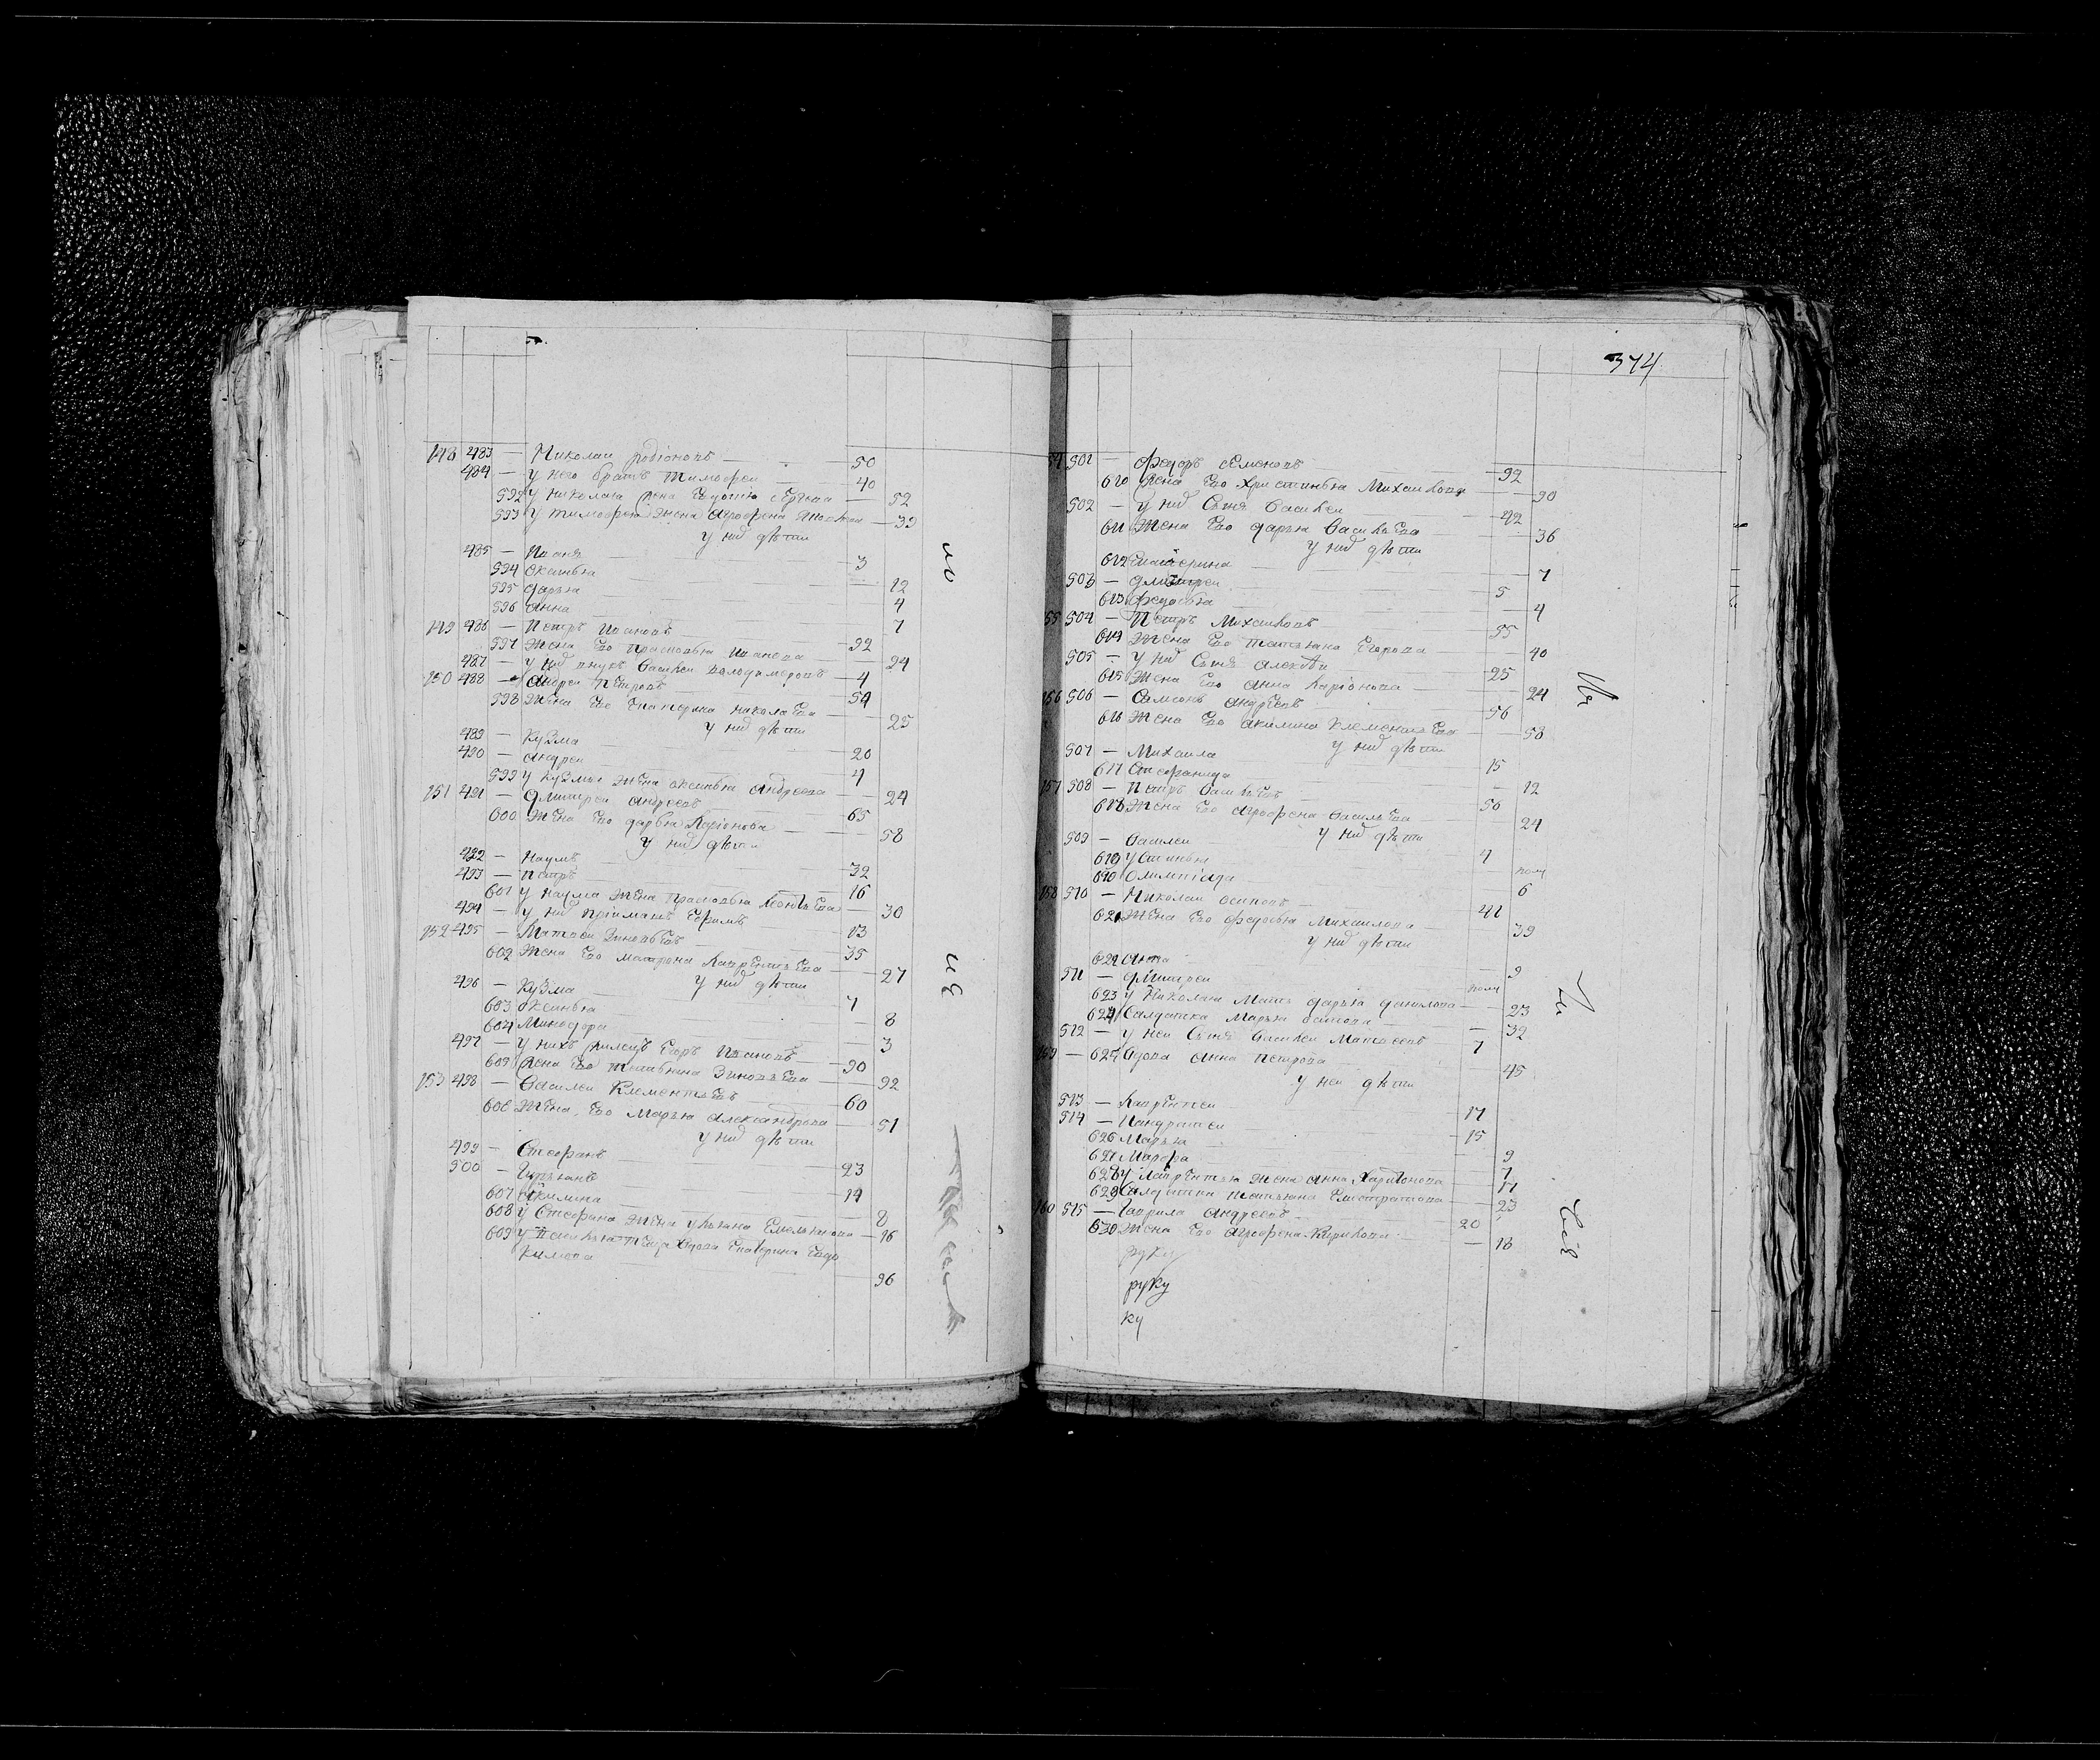 148 483 — Николаи родіоновъ — 50
484 — у него братъ тимофеи — 40
592 у николая жена Евдокия сергѣева — 52
593 у тимофея жена агрофена — 39
у ниⷯ дѣти
485 — Иванъ — 3
594 Оксинья — 12
595 дарья — 4
596 анна — 7
149 486 — Петръ Ивановъ — 92
597 жена Ево Прасковья Иванова — 94
487 — у ниⷯ внукъ Василеи володимеровъ — 4
150 488 — андреи Петровъ — 54
598 жена Ево Екатерина николаева — 25
у ниⷯ дѣти
489 — Кузма — 20
490 — андреи — 4
599 у кузмы жена оксинья андреева — 24
151 491 — дмитреи андреевъ — 65
600 жена Ево дарья Ларіонова — 58
у ниⷯ дѣти
492 — Наумъ — 32
493 — Петръ — 16
601 у наума жена прасковья Леонтьева — 30
494 — у ниⷯ пріимашъ Ефимъ — 13
152 495 — Матвеи Зиновьевъ — 35
602 жена Ево матрона Лаврентьева — 27
у ниⷯ дѣти
496 — Кузма — 7
603 Оксинья — 8
604 Минодора — 3
497 — у нихъ Егоръ Ивановъ — 90
605 жена Ево татьяна Зиновьева — 92
153 498 — Василеи Клементьевъ — 60
606 жена Ево Марья александрова — 51
у ниⷯ дѣти
499 — Стефанъ — 23
500 — — 14
607 Акилина — 8
608 у Стефана жена ульяна Емельянова — 16
609 у василья теща вдова Екатерина Евдо
кимова — 96
374
501 — федоръ семеновъ — 92
610 жена Ево Христинья Михаилова — 90
502 — у ниⷯ Сынъ Василеи — 42
611 жена Ево дарья Васильева — 36
у ниⷯ дѣти
612 Екатерина — 7
503 — дмитреи — 5
613 федосья — 4
504 — Петръ Михаиловъ — 55
614 жена Ево татьяна Егорова — 40
505 — у ниⷯ Сынъ алексѣи — 25
615 жена Ево анна Ларіонова — 24
156 506 — Самсонъ андреевъ — 56
616 жена Ево акилина Клементьева — 58
у ниⷯ дѣти
507 — Михаила — 15
617 Стефанида — 12
157 508 — Петръ Васильевъ — 50
618 жена Ево агрофена Васильева — 24
у ниⷯ дѣти
509 — Василеи — 4
619 Устинья — полу
620 Олимпіада — 6
158 510 — Николаи осиповъ — 41
621 жена Ево федосья Михаилова — 39
у ниⷯ дѣти
622 анна — 9
511 — дмитреи — полу
623 у Николая Мать дарья данилова — 23
624 Салдатка Марья — 32
512 — у неи Сынъ Василеи Матвеевъ — 7
159 — 625 вдова анна Петрова — 45
у неи дѣти
513 — Лаврентеи — 17
514 — Кандратеи — 15
626 Марья — 9
627 Марфа — 7
628 у Лаврентья жена анна Харитонова — 17
629 Салдатка татьяна Елистратова — 23
160 515 — Гаврила андреевъ — 20
630 жена Ево агрофена Кирилова — 18
руку
руку
ку